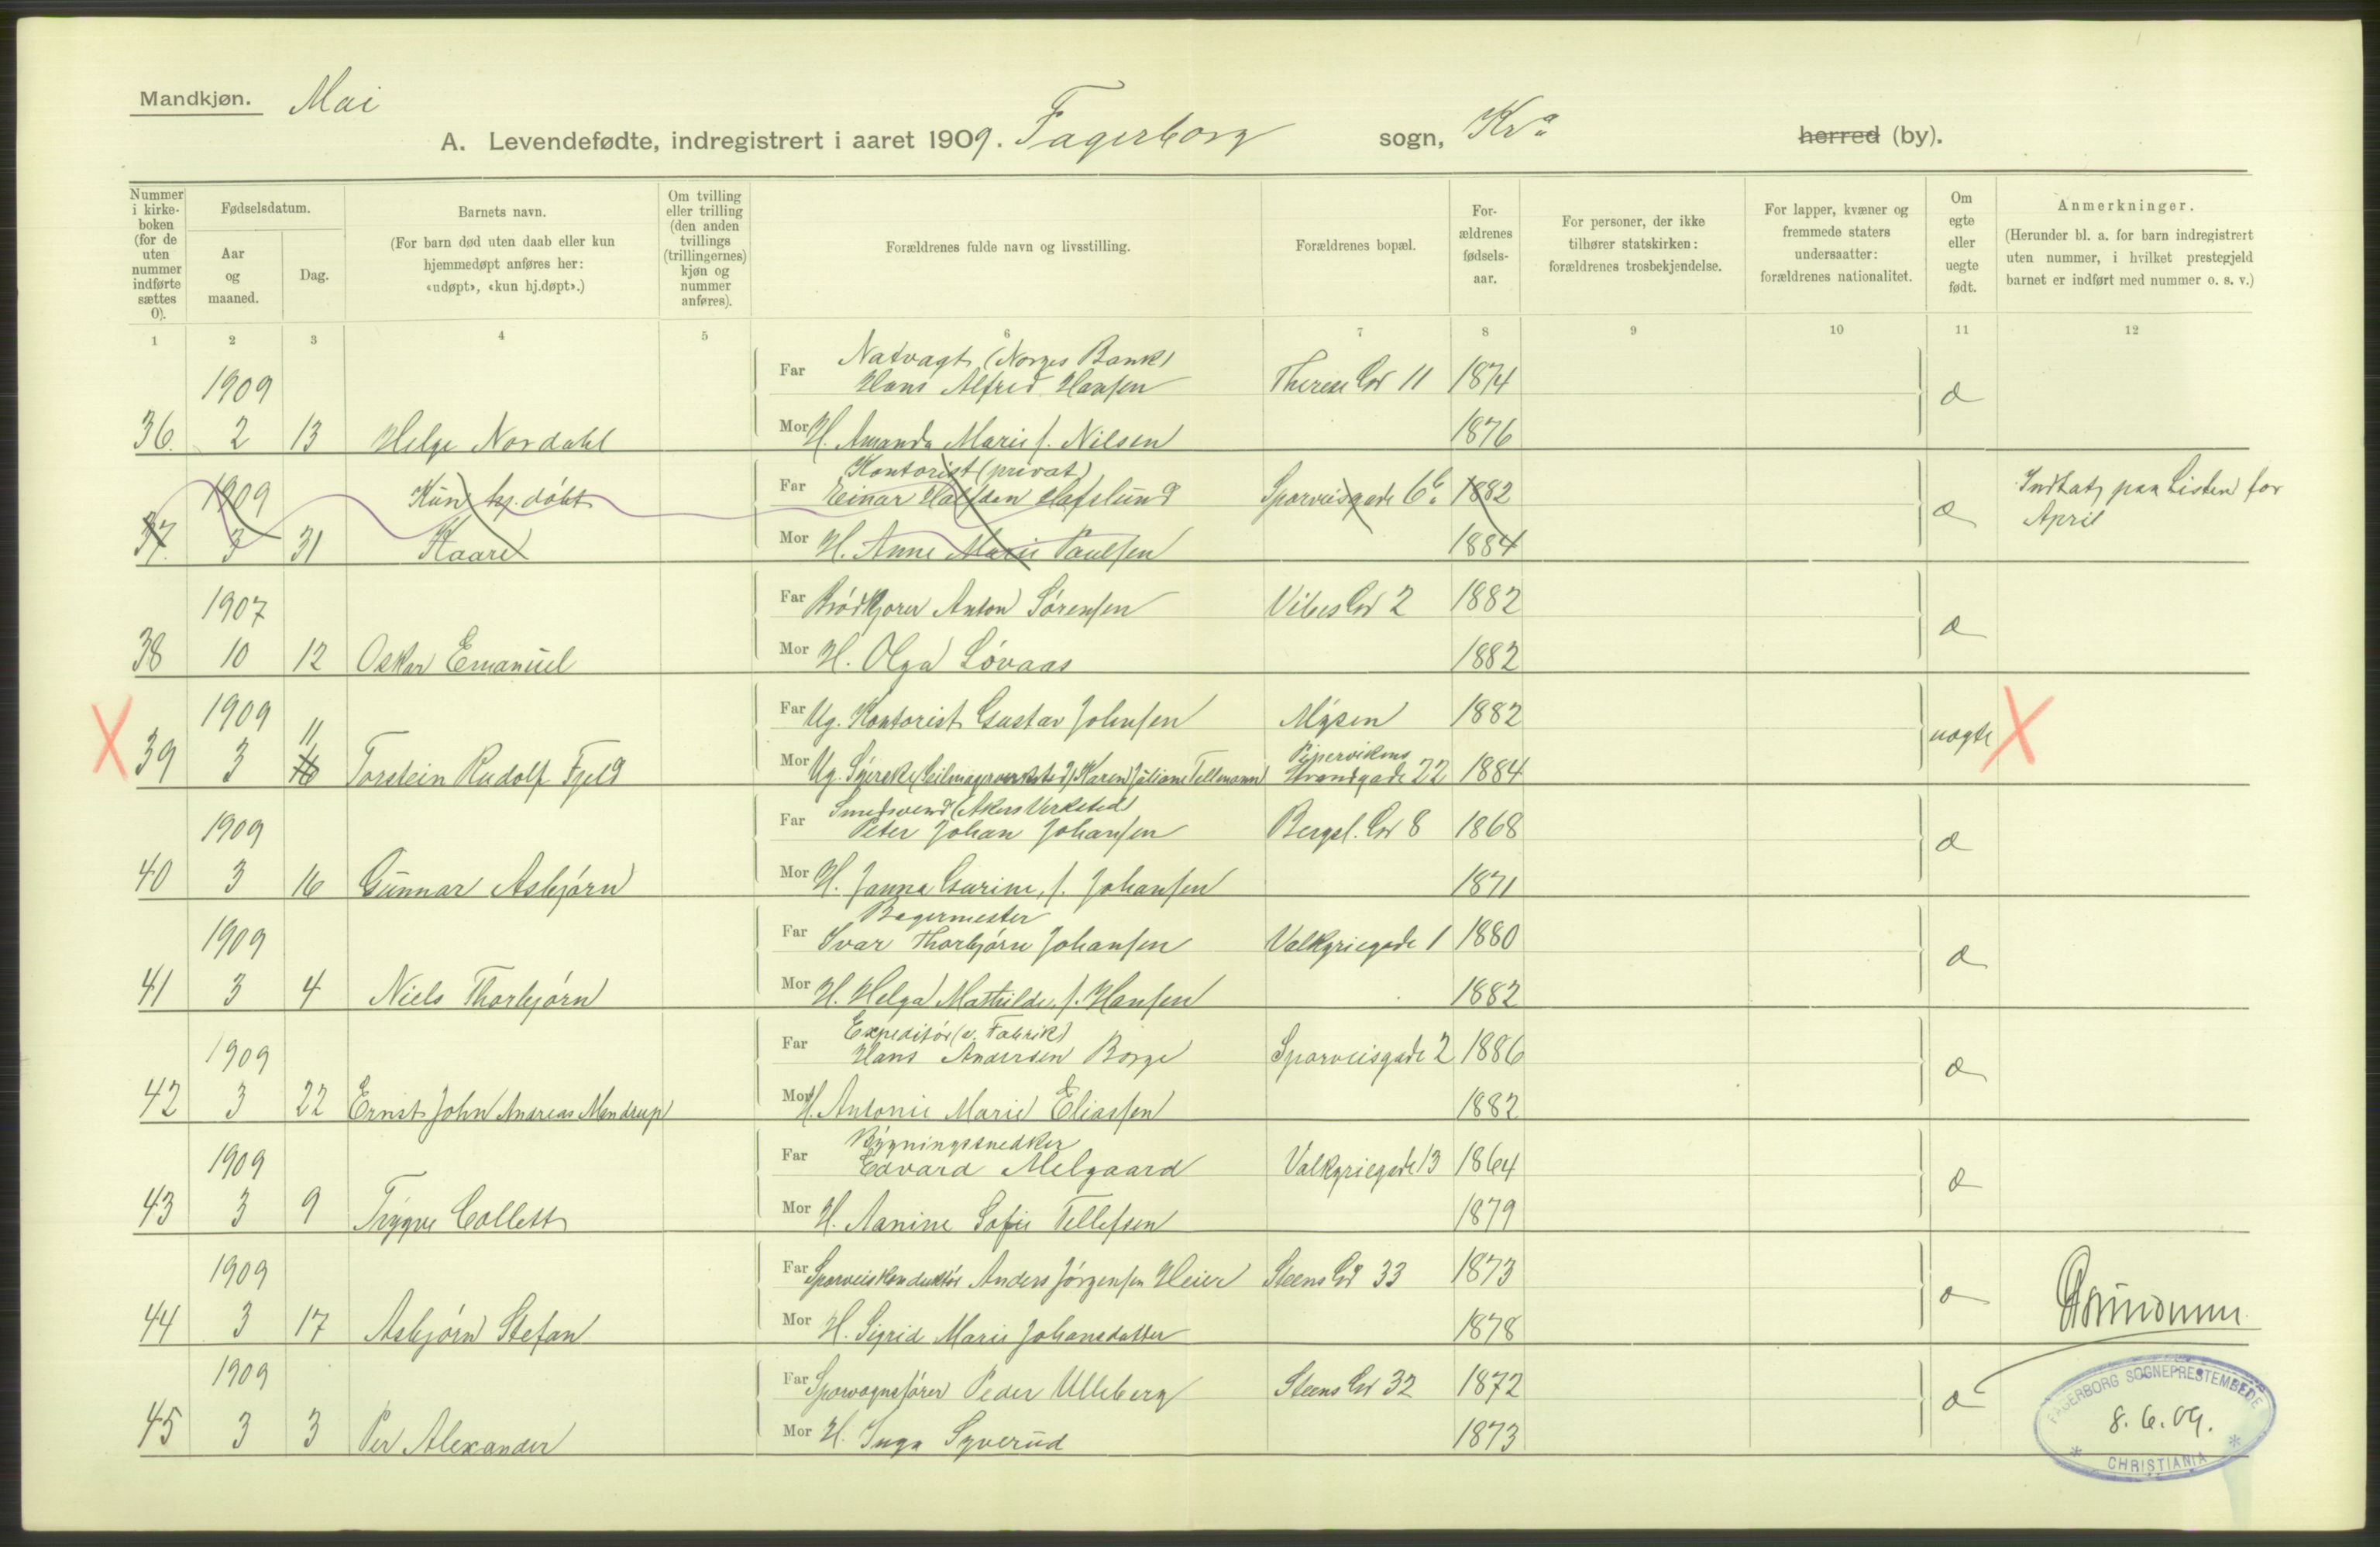 Mandkjøn. Mai
A. Levendefødte, indregistrert i aaret 1909. Fagerborg sogn, Kra herred (by).
Nummer i kirke-boken (for de uten nummer indførte sættes 0).
Fødselsdatum.
Aar og maaned.
Dag.
Barnets navn.
(For barn død uten daab eller kun hjemmedøpt anføres her: «udøpt», «kun hj.døpt».)
Om tvilling eller trilling (den anden tvillings (trillingernes) kjøn og nummer anføres).
Forældrenes fulde navn og livsstilling.
Forældrenes bopæl.
For-ældrenes fødsels-aar.
For personer, der ikke tilhører statskirken: forældrenes trosbekjendelse.
For lapper, kvæner og fremmede staters undersaatter: forældrenes nationalitet.
Om egte eller uegte født.
Anmerkninger.
(Herunder bl. a. for barn indregistrert uten nummer, i hvilket prestegjeld barnet er indført med nummer o. s. v.)
1 2 3 4 5 6 7 8 9 10 11 12
Natvagt (Norges Bank)
1909 Far Hans Alfred Hansen Therese Gd 11 1874 æ
36. 2 13 Helge Nordahl Mor H. Amanda Marie f. Nilsen 1876
Kontorist (privat)
1909 Kun hj. døbt Far Einar Halfdan Hafslund Sporveisgade 6b. 1882 æ Indtat paa Listen for
37. 3 31 Kaare Mor H. Anne Marie Paulsen 1884 April
1907 Far Brødkjører Anton Sørensen Vibes Gd 2 1882 æ
38 10 12 Oskar Emanuel Mor H. Olga Løvaas 1882
1909 Far Ug. Kontorist Gustav Johnsen Mysen 1882 uægte
11 Pipervikens
X 39 3 16 Torstein Rudolf Fjeld Mor Ug. Syerske (Seilmagerverksted) Karen Juliane Tellmann Strandgade 22 1884 X
Smedsvend (Akers Verksted)
1909 Far Peter Johan Johansen Bergsl. Gd 8 1868 æ
40 3 16 Gunnar Asbjørn Mor H. Janna Gurine, f. Johansen 1871
Bagermester
1909 Far Ivar Thorbjørn Johansen Valkyriegade 1 1880 æ
41 3 4 Niels Thorbjørn Mor H. Helga Mathilde, f. Hansen 1882
Expeditør (v. Fabrik)
1909 Far Hans Andersen Borge Sporveisgade 2 1886 æ
42 3 22 Ernst John Andreas Mandrup Mor H. Antonie Marie Eliassen 1882
Bygningssnedker
1909 Far Edvard Melgaard Valkyriegade 13 1864 æ
43 3 9 Trygve Collett Mor H. Aanine Sofie Tellefsen 1879
1909 Far Sporveiskonduktør Anders Jørgensen Heier Steens Gd 33 1873 æ
44 3 17 Asbjørn Stefan Mor H. Sigrid Marie Johansdatter 1878
1909 Far Sporvognsfører Peder Ulleberg Steens Gd 32 1872 æ
45 3 3 Per Alexander Mor H. Inga Syverud 1873
FAGERBORG SOGNEPRESTEMBEDE
8. 6. 09.
* CHRISTIANIA *